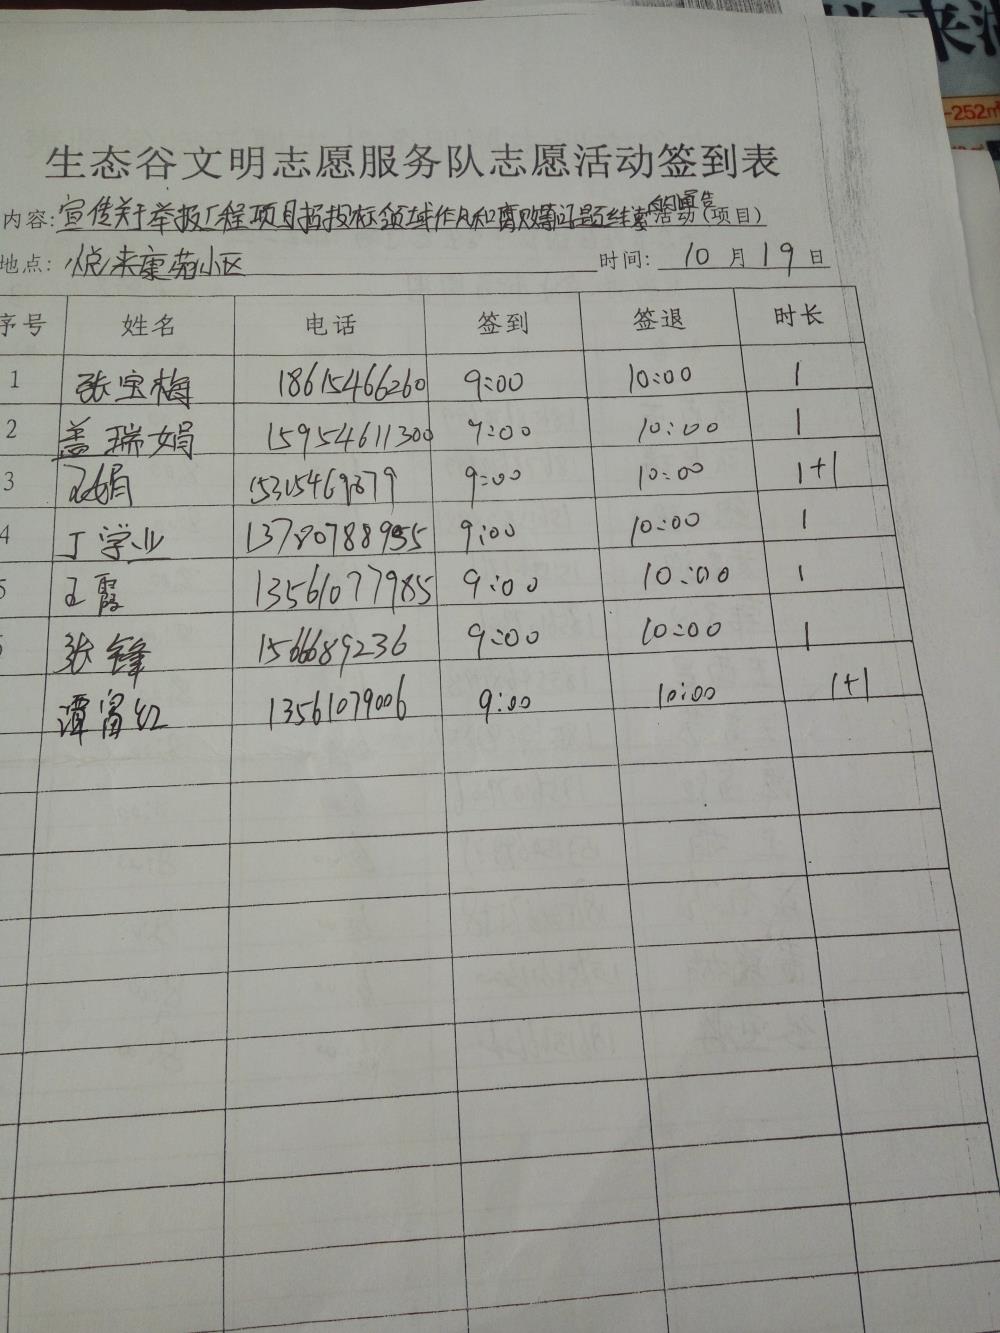 生态谷文明志愿服务队志愿活动签到表
内容:宣传关于举报工程项目招投标领域作风和腐败问题线索的通告活动(项目)
地点:悦来康苑小区 时间: 10 月 19 日
序号 姓名 电话 签到 签退 时长
1 张宝梅 18615466260 9:00 10:00 1
2 盖瑞娟 15954611300 9:00 10:00 1
3 王娟 9:00 10:00 1+1
4 丁学业 9:00 10:00 1
5 王霞 13561077985 9:00 10:00 1
张锋 1566689236 9:00 10:00 1
谭富红 13561079006 9:00 10:00 1+1
来
-252㎡